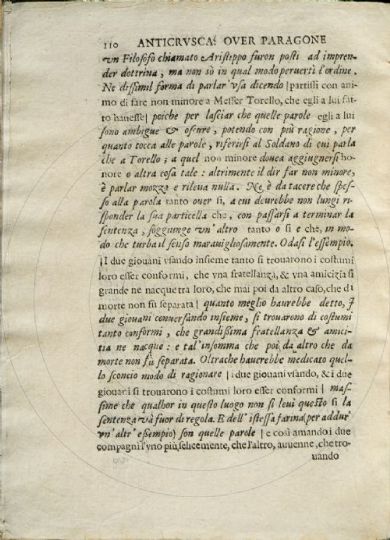 110 ANTICRVSCA: OVER PARAGONE
vn Filosofo chiamato Aristippo furon posti ad impren-
der dottrina, ma non sò in qual modo peruerti l'ordine.
Ne dissimil forma di parlar vsa dicendo | partissi con ani
mo di fare non minore a Messer Torello, che egli a lui fat
to hauesse | poiche per lasciar che quelle parole egli a lui
sono ambigue & oscure, potendo con più ragione, per
quanto tocca alle parole, riferirsi al Soldano di cui parla
che a Torello; a quel non minore douea aggiugnersi ho
nore o altra cosa tale: altrimente il dir far non minore,
è parlar mozzo e rileua nulla. Ne è da tacere che spes-
so alla parola tanto ouer si, a cui deurebbe non lungi ri-
sponder la sua particella che, con passarsi a terminar la
sentenza, soggiunge vn'altro tanto o si e che, in mo-
do che turba il senso marauigliosamente. Odasi l'essempio.
|I due giouani vsando insieme tanto si trouarono i costumi
loro esser conformi, che vna fratellanza, & vna amicizia si
grande ne nacque tra loro, che mai poi da altro caso, che di
morte non fù separata | quanto meglio haurebbe detto, I
due giouani conuersando insieme, si trouarono di costumi
tanto conformi, che grandissima fratellanza & amici-
tia ne nacque: e tal'insomma che poi da altro che da
morte non fù separata. Oltrache hauerebbe medicato quel-
lo sconcio modo di ragionare | i due giouani vsando, & i due
giouani si trouarono i costumi loro esser conformi | mas-
sime che qualhor in questo luogo non si leui questo si la
sentenza và fuor di regola. E dell'istessa farina (per addur
vn'altr'esempio) son quelle parole | e così amando i due
compagni l'vno più felicemente, che l'altro, auuenne, che tro-
uando